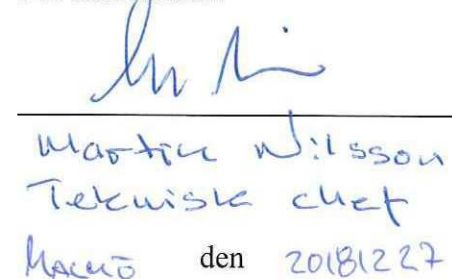 Martin Nilsson
Teknisk chef
Malmö den 20181227